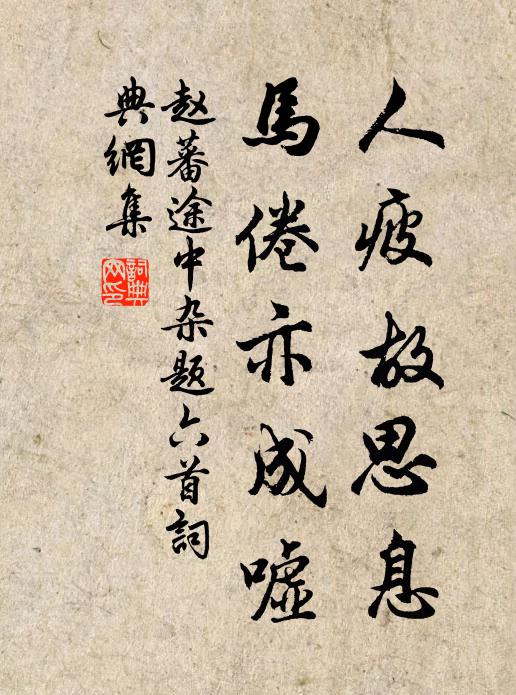 人疲故思息
馬倦亦成嘘
赵蕃途中杂题六首詞
典網集
詞典
网印